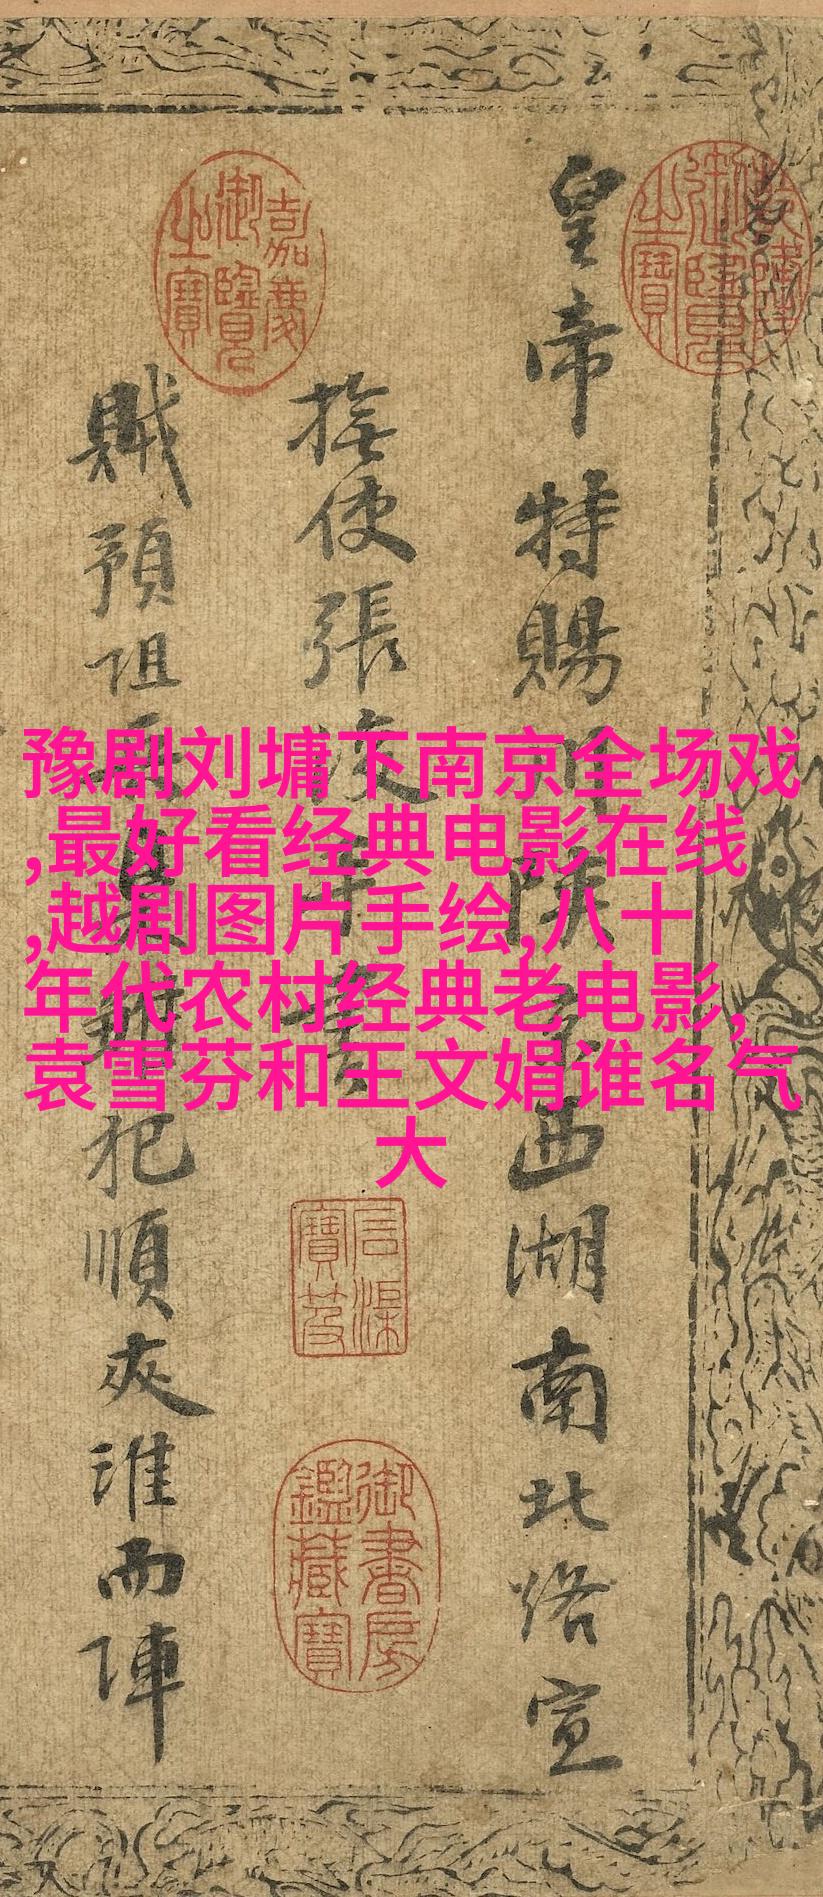 豫剧刘墉下南京全场戏
,最好看经典电影在线
,越剧图片手绘,八十
年代农村经典老电影,
袁雪芬和王文娟谁名气
大
皇帝特賜川陝京西湖南北路宣
撫使張浚手書
賊預阻兵犯順夾淮而陣
乾隆御覽之寶
嘉慶御覽之寶
石渠寶笈
御書房鑑藏寶